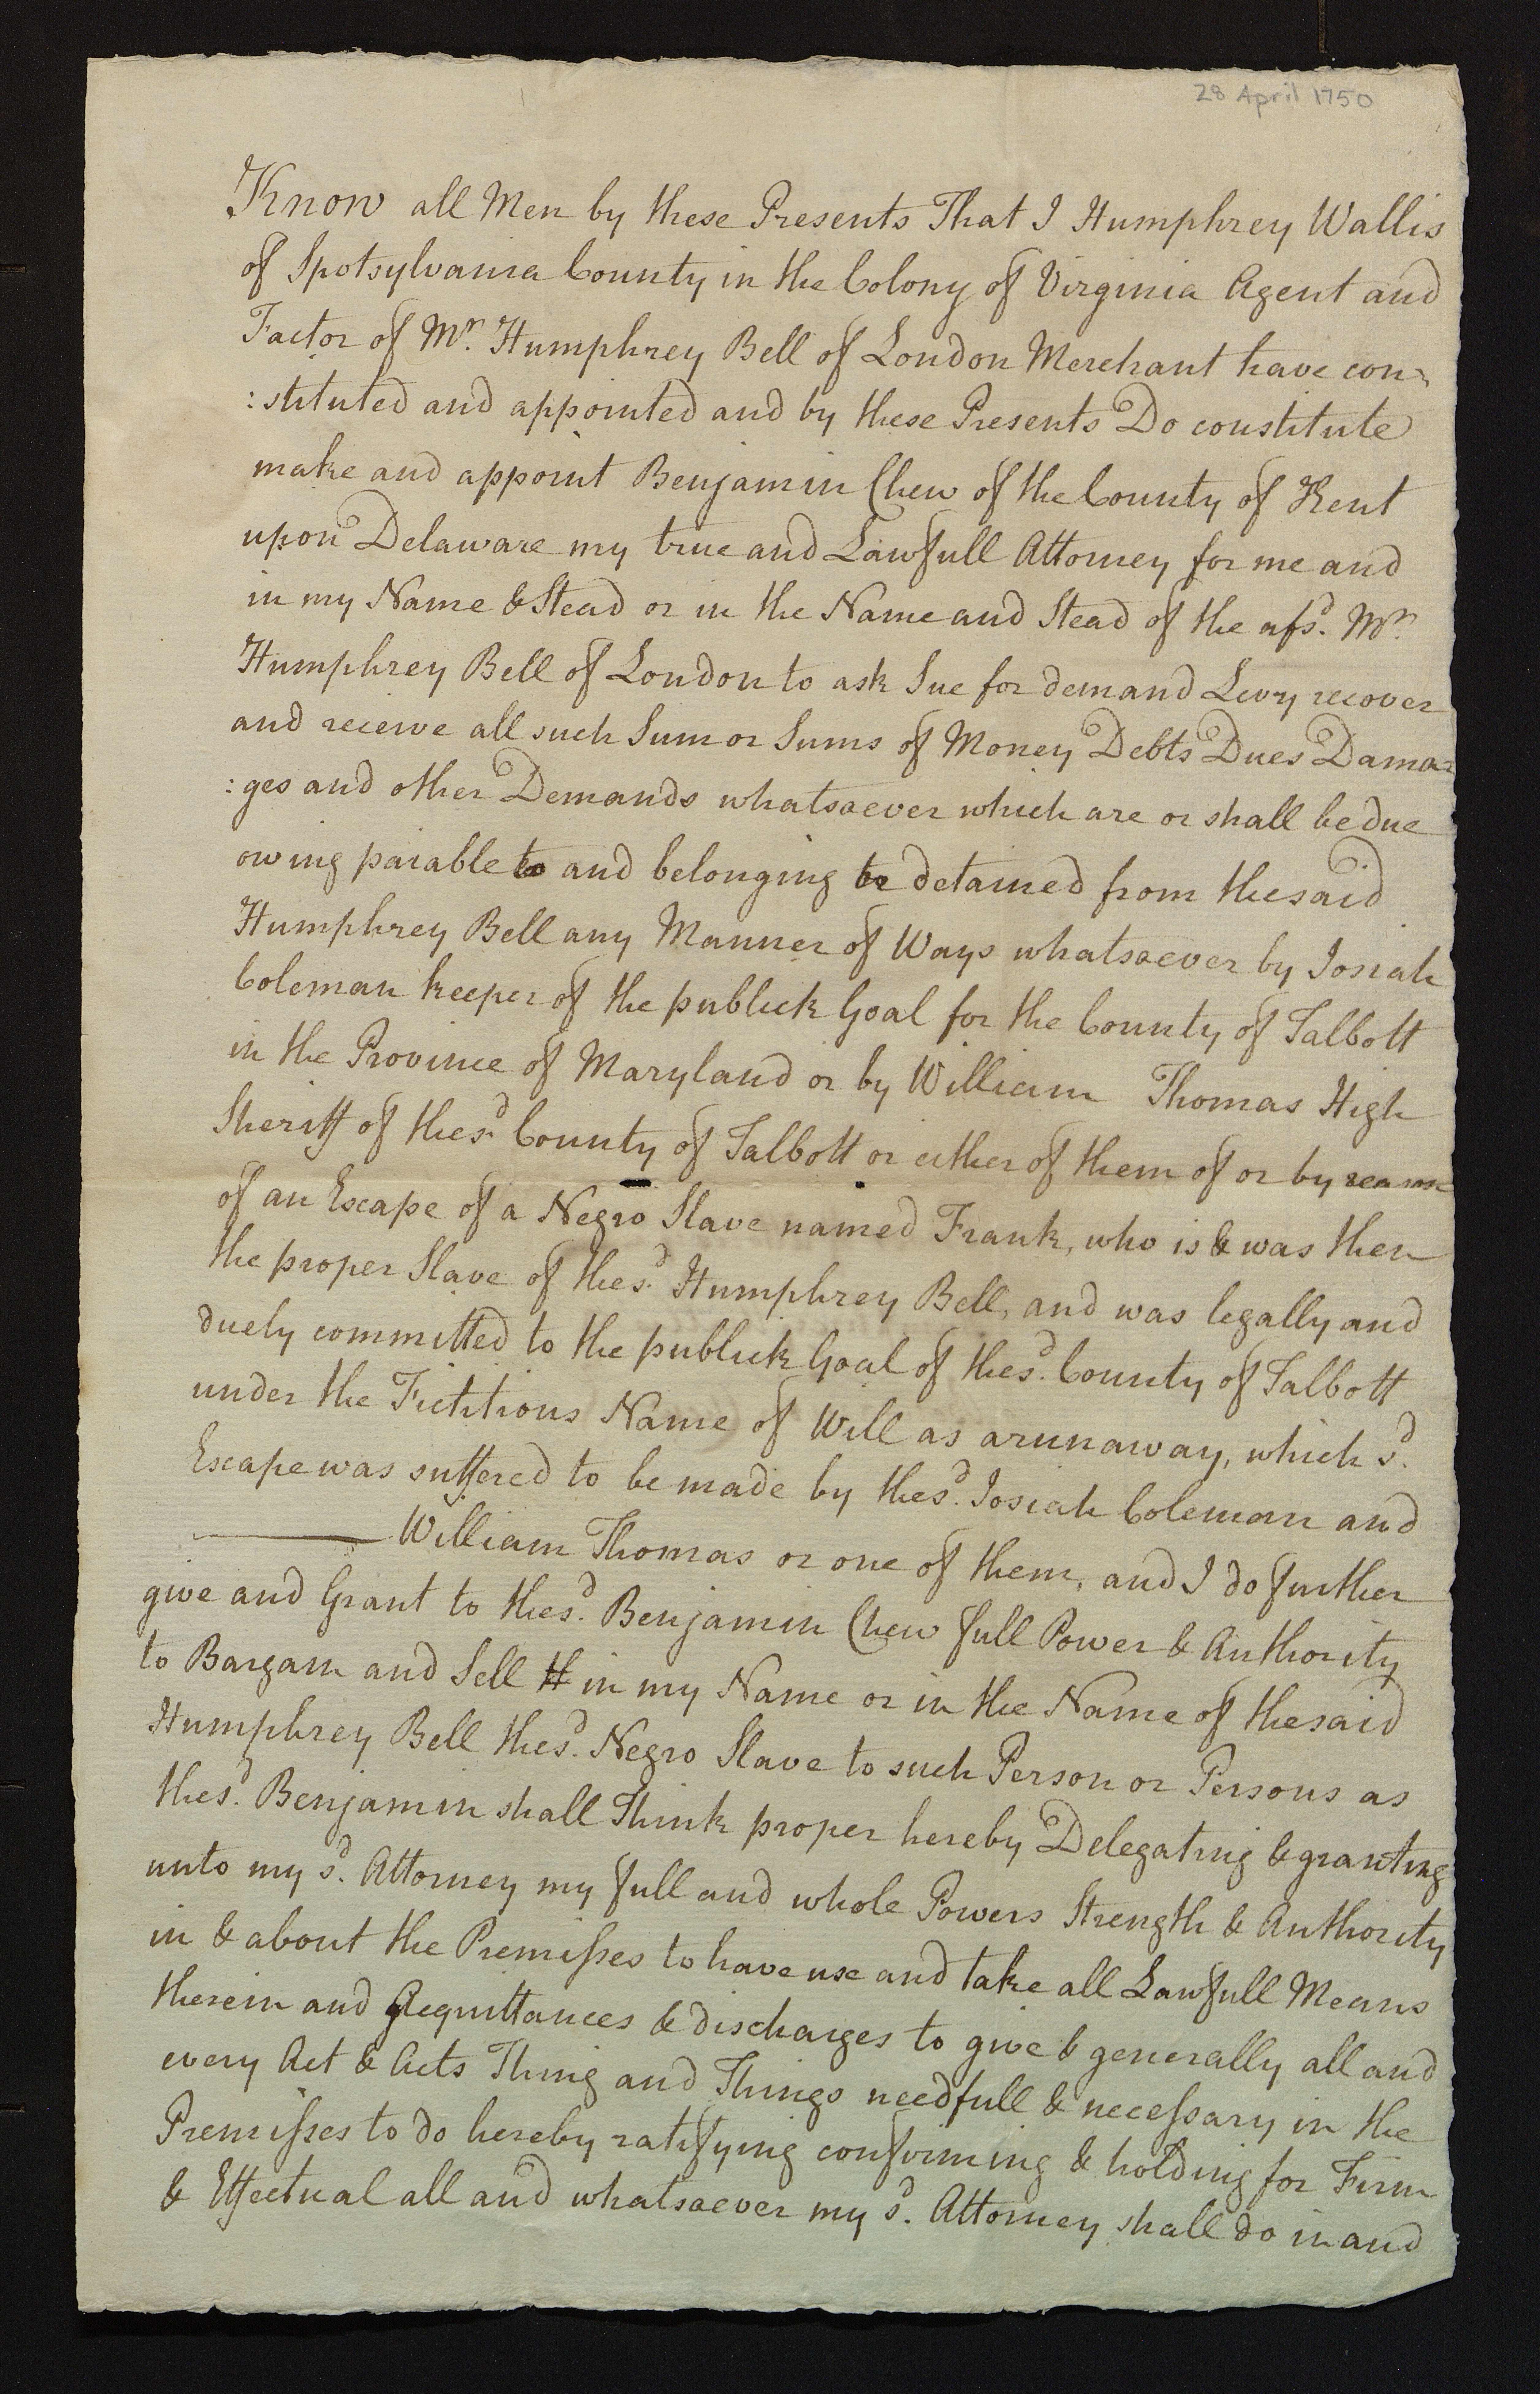 28 April 1750
Know all Men by these Presents That I Humphrey Wallis
of Spotsylvania County in the Colony of Virginia Agent and
Factor of Mr. Humphrey Bell of London Merchant have con=
:stituted and appointed and by these Presents Do constitute
make and appoint Benjamin Chew of the County of Kent
upon Delaware my true and Lawfull Attorney for me and
in my Name & Stead or in the Name and Stead of the afsd. Mr.
Humphrey Bell of London to ask Sue for demand Levy recover
and receive all such Sum or Sums of Money Debts Dues Dama=
:ges and other Demands whatsoever which are or shall be due
owing paiable to and belonging to detained from the said
Humphrey Bell any Manner of Ways whatsoever by Josiah
Coleman keeper of the publick Goal for the County of Talbott
in the Province of Maryland or by William Thomas High
Sheriff of the sd. County of Talbott or either of them of or by reason
of an Escape of a Negro Slave named Frank, who is & was then
the proper Slave of the sd. Humphrey Bell, and was legally and
duely committed to the publick Goal of the sd. County of Talbott
under the Fictitious Name of Will as a runaway, which sd.
Escape was suffered to be made by the sd. Josiah Coleman and
William Thomas or one of them, and I do further
give and Grant to the sd. Benjamin Chew full Power & Authority
to Bargain and Sell H in my Name or in the Name of the said
Humphrey Bell the sd. Negro Slave to such Person or Persons as
the sd. Benjamin shall Think proper hereby Delegating & granting
unto my sd. Attorney my full and whole Powers Strength & Authority
in & about the Premisses to have use and take all Lawfull Means
therein and Acquittances & discharges to give & generally all and
every Act & Acts Thing and Things needfull & necessary in the
Premisses to do hereby ratifying conforming & holding for Firm
& Effectual all and whatsoever my sd. Attorney shall do in and